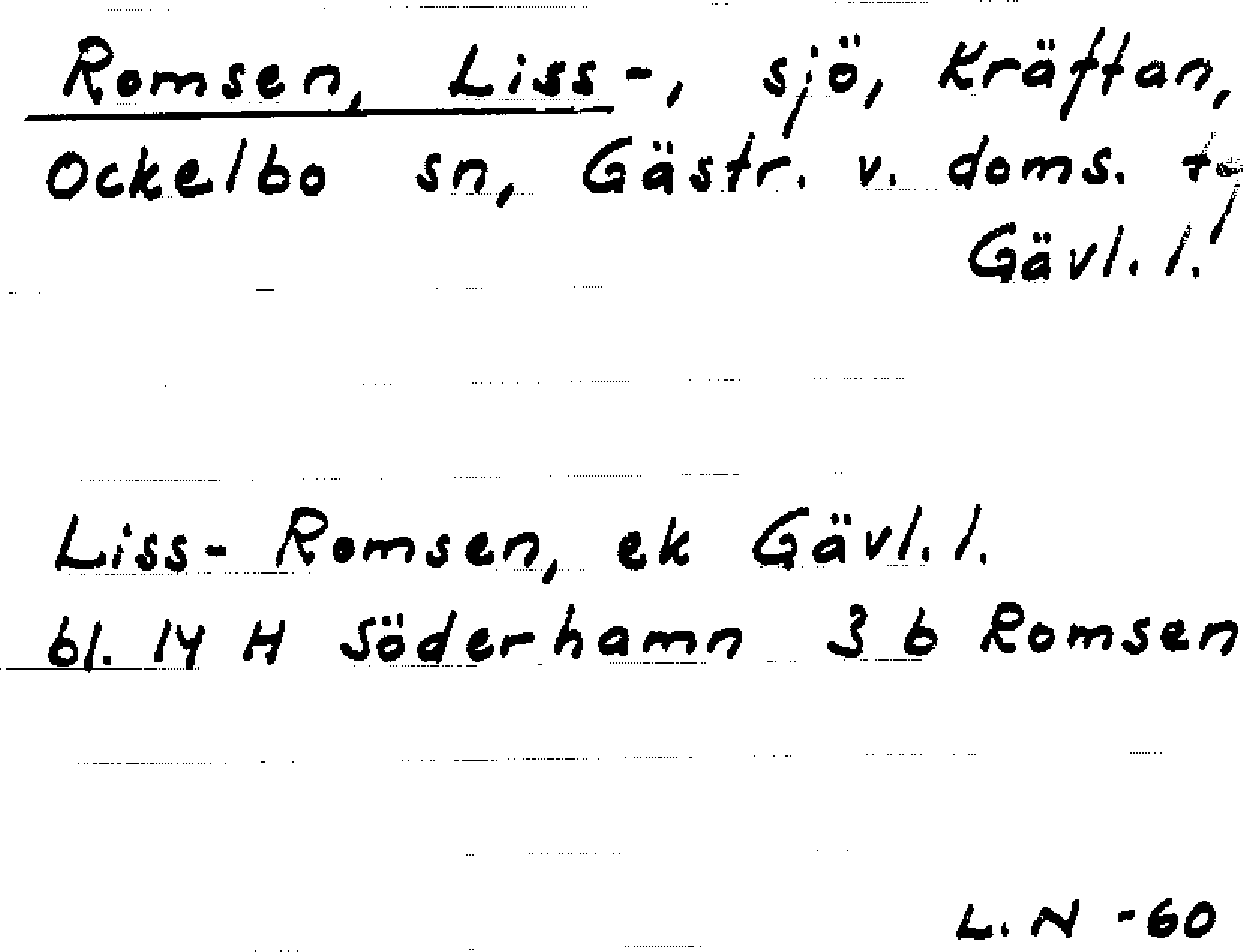 Romsen, Liss-, sjö, Kräftan,
Ockelbo sn, Gästr. v. doms. tg
Gävl. l.
Liss-Romsen, ek Gävl. l.
bl. 14 H Söderhamn 3 b Romsen
L. N -60